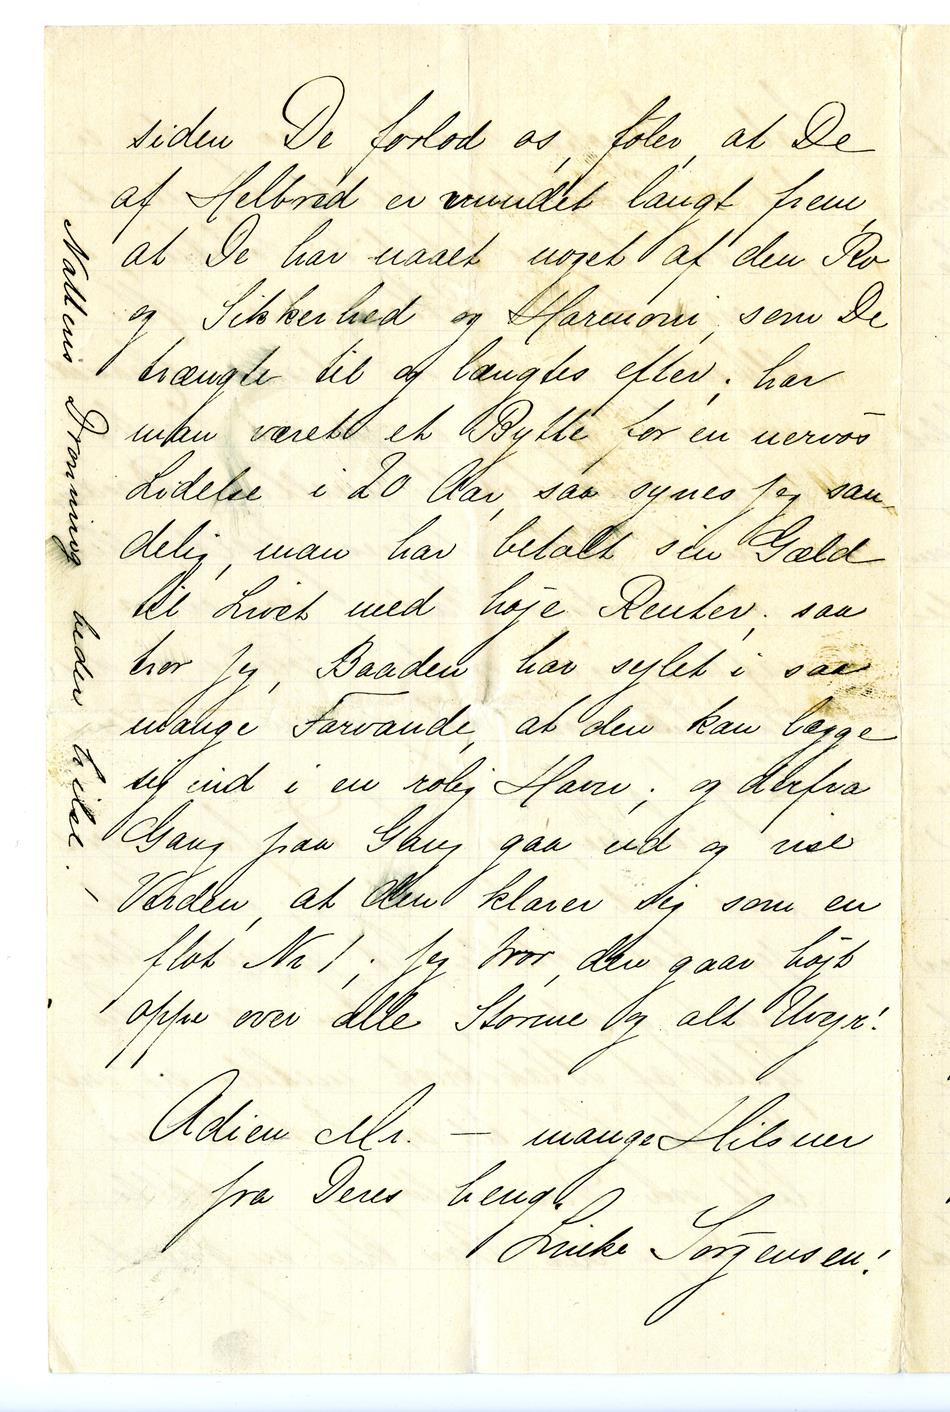 siden De forlod os, føler, at De
af Helbred er vundet langt frem,
at De har naaet noget af den Ro
og Sikkerhed og Harmoni, som De
trængte til og længtes efter; har
man været et Bytte for en nervøs
Lidelse i 20 Aar, saa synes jeg san-
delig, man har betalt sin Gæld
til Livet med høje Renter; saa
tror jeg, Baaden har sejlet i saa
mange Farvande, at den kan lægge
sig ind i en rolig Havn; og derfra
Gang paa Gang gaa ud og vise
Verden, at den klarer sig som en
flot Nr 1; jeg tror, den gaar højt
oppe over alle Storme og alt Uvejr!
Adieu Mr. — mange Hilsner
fra Deres heng.
Jørgensen!
Nattens Dronning beder hilse! —